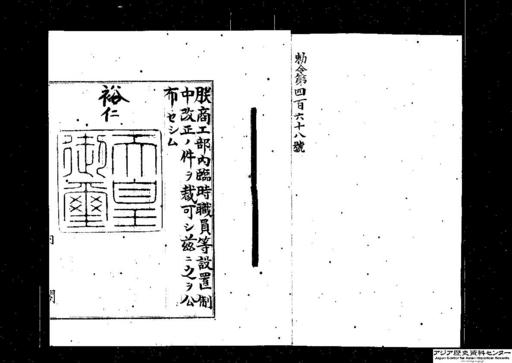 勅令第四百六十八號
朕商工部內臨時職員等設置制
中改正ノ件ヲ裁可シ茲ニ之ヲ公
布セシム
裕仁
天皇
御璽
内
閣
アジア歴史資料センター
Japan Center for Asian Historical Records